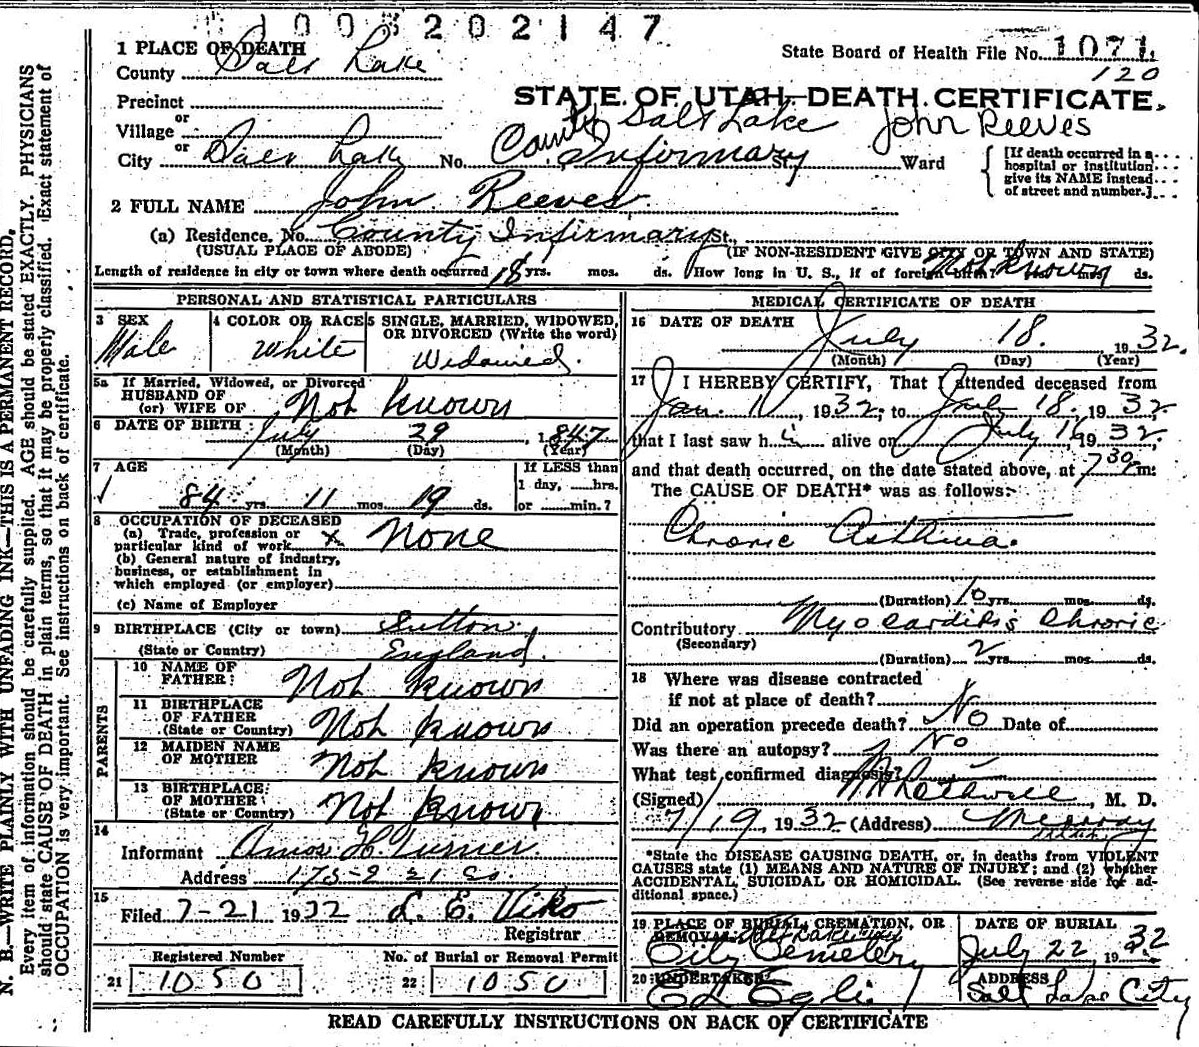 1003202147
1 PLACE OF DEATH
State Board of Health File No. 1071
County Salt Lake
120
Precinct
STATE OF UTAH—DEATH CERTIFICATE.
or
Village
County Salt Lake John Reeves
or
City Salt Lake No. Infirmary St., Ward
[If death occurred in a hospital or institution give its NAME instead of street and number.]
2 FULL NAME John Reeves
(a) Residence, No. County Infirmary St.,
(USUAL PLACE OF ABODE) (IF NON-RESIDENT GIVE CITY OR TOWN AND STATE)
Length of residence in city or town where death occurred 18 yrs. mos. ds. How long in U. S., if of foreign birth? Not known ds.
PERSONAL AND STATISTICAL PARTICULARS
3 SEX
Male
4 COLOR OR RACE
White
5 SINGLE, MARRIED, WIDOWED,
OR DIVORCED (Write the word)
Widowed.
5a If Married, Widowed, or Divorced
HUSBAND OF
(or) WIFE OF Not known
6 DATE OF BIRTH July 29, 1847
(Month) (Day) (Year)
7 AGE
If LESS than
1 day, hrs.
84 yrs. 11 mos. 19 ds. or min.?
8 OCCUPATION OF DECEASED
(a) Trade, profession or
particular kind of work x None
(b) General nature of industry,
business, or establishment in
which employed (or employer)
(c) Name of Employer
9 BIRTHPLACE (City or town) Sutton
(State or Country) England.
PARENTS
10 NAME OF
FATHER: Not known
11 BIRTHPLACE
OF FATHER Not known
(State or Country)
12 MAIDEN NAME
OF MOTHER Not known
13 BIRTHPLACE
OF MOTHER Not known
(State or Country)
14
Informant Amos H. Turner.
Address 175-2 21 So.
15
Filed 7-21 1932 L. E. Viko
Registrar
Registered Number No. of Burial or Removal Permit
21 1050 22 1050
MEDICAL CERTIFICATE OF DEATH
16 DATE OF DEATH
July 18. 1932.
(Month) (Day) (Year)
17 I HEREBY CERTIFY, That I attended deceased from
Jan. 11, 1932, to July 18. 1932
that I last saw h i alive on July 16 1932.
and that death occurred, on the date stated above, at 7 30 P m.
The CAUSE OF DEATH* was as follows:
Chronic Asthma.
(Duration) 10 yrs. mos. ds.
Contributory Myocarditis Chronic
(Secondary)
(Duration) 2 yrs. mos. ds.
18 Where was disease contracted
if not at place of death?
Did an operation precede death? No Date of
Was there an autopsy? No
What test confirmed diagnosis?
(Signed) , M. D.
7/19, 1932 (Address) Murray
Utah
*State the DISEASE CAUSING DEATH, or, in deaths from VIOLENT
CAUSES state (1) MEANS AND NATURE OF INJURY; and (2) whether
ACCIDENTAL, SUICIDAL OR HOMICIDAL. (See reverse side for ad-
ditional space.)
19 PLACE OF BURIAL, CREMATION, OR
REMOVAL Salt Lake City
City Cemetery
DATE OF BURIAL
July 22 1932
20 UNDERTAKER
ADDRESS
Salt Lake City
READ CAREFULLY INSTRUCTIONS ON BACK OF CERTIFICATE
N. B.—WRITE PLAINLY WITH UNFADING INK—THIS IS A PERMANENT RECORD.
Every item of information should be carefully supplied. AGE should be stated EXACTLY. PHYSICIANS
should state CAUSE OF DEATH in plain terms, so that it may be properly classified. Exact statement of
OCCUPATION is very important. See instructions on back of certificate.